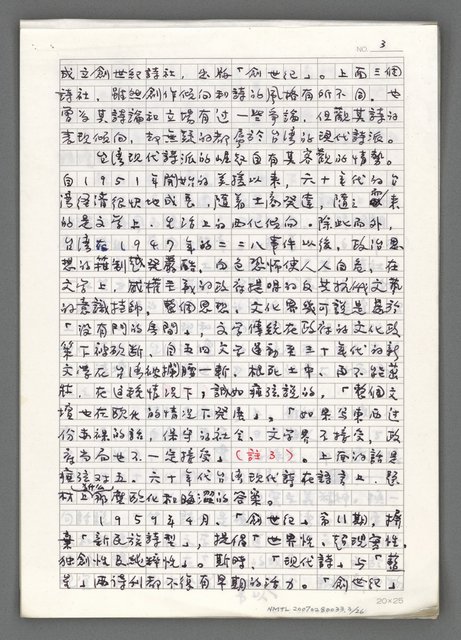 NO. 3
成立創世紀詩社，出版「創世紀」。上面三個
詩社，雖然創作傾向和詩的風格有所不同。也
曾為其詩論和立場有過一些爭論，但觀其詩的
表現傾向，却無疑的都屬於台灣的現代詩派。
台灣現代詩派的崛起自有其客觀的情勢。
自1951年開始的美援以來，六十年代的台
灣經濟很快地成長，隨着工商發達，隨之而來
的是文學上、生活上的西化傾向。除此而外，
台灣在1947年的二二八事件以後，政治思
想的箝制愈發嚴酷，白色恐怖使人人自危，在
文學上，威權主義的政府提唱的反共抗俄文藝
的意識掛帥，整個思想、文化界幾可說是屬於
「沒有門的房間」，文學傳統在政府的文化政
策下被砍斷，自五四文學運動至三十年代的新
文學在台灣被掃蕩一斬，根死土中，再不能茁
壯，在這種情況下，誠如瘂弦說的，「整個文
壇也在歐化的情況下發展」。「如果寫東西過
份赤裸的話，保守的社會、文學界不接受，政
府當局也不一定接受」（註3）。上面的話是
瘂弦對五、六十年代台灣現代詩在語言上、題
材上那麼歐化和晦澀的答案。
1959年4月，「創世紀」第11期，揚
棄「新民族詩型」，提倡「世界性、超現實性、
獨創性及純粹性」。斯時，「現代詩」與「藍
星」兩詩刊都不復有早期的活力。「創世紀」
20×25
NMTL20070280033